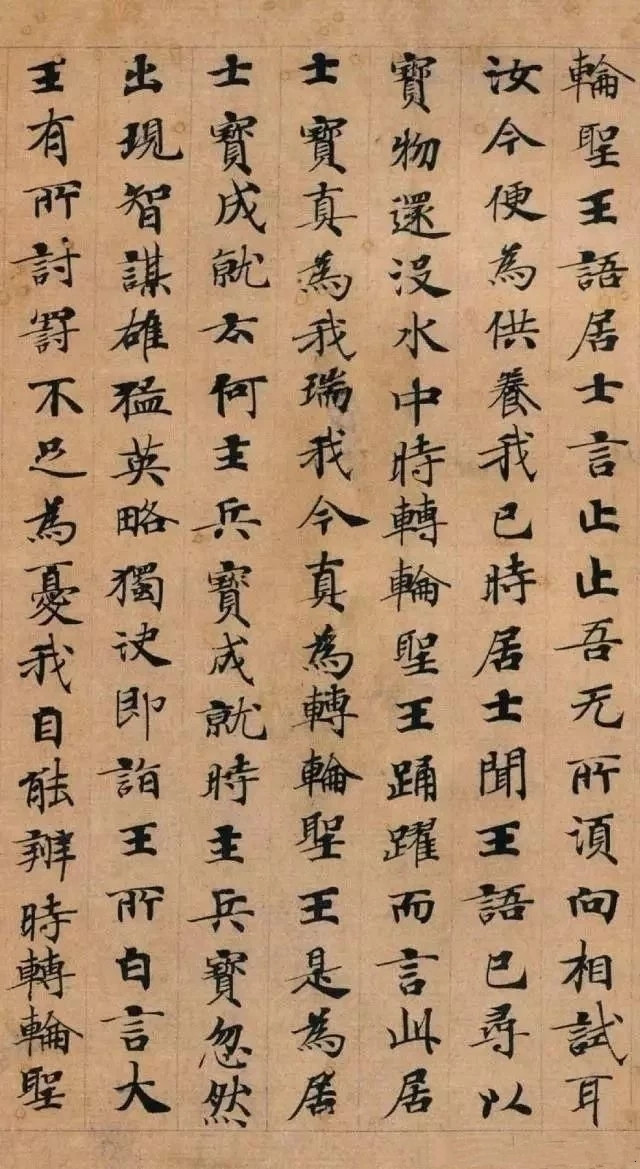 輪聖王語居士言止止吾无所須向相試耳
汝今便為供養我已時居士聞王語已尋以
寶物還沒水中時轉輪聖王踊躍而言此居
士寶真為我瑞我今真為轉輪聖王是為居
士寶成就云何主兵寶成就時主兵寶忽然
出現智謀雄猛英略獨決即詣王所白言大
王有所討罸不足為憂我自能辦時轉輪聖